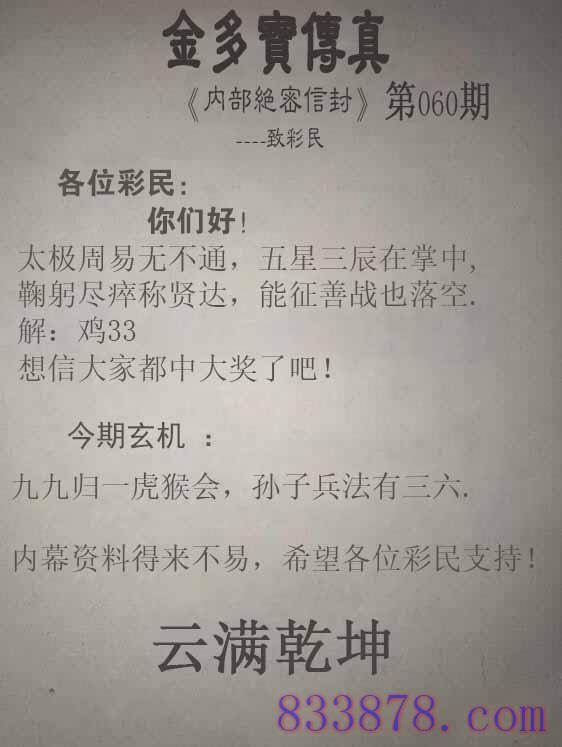 金多寶傳真
《内部絕密信封》第060期
----致彩民
各位彩民:
你们好!
太极周易无不通，五星三辰在掌中,
鞠躬尽瘁称贤达，能征善战也落空.
解：鸡33
想信大家都中大奖了吧!
今期玄机 ：
九九归一虎猴会，孙子兵法有三六.
内幕资料得来不易，希望各位彩民支持!
云满乾坤
833878.com